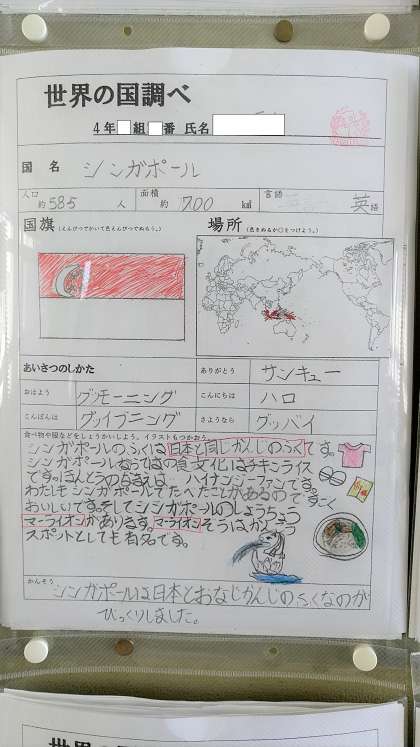 世界の国調べ
4年 組 番 氏名
国名 シンガポール
人口 約585 人 面積 約 700 km² 言語 英語
国旗 (えんぴつでかいて色えんぴつでぬろう。) 場所 (色をぬるか〇をつけよう。)
あいさつのしかた ありがとう サンキュー
おはよう グッモーニング こんにちは ハロ
こんばんは グッイブニング さようなら グッバイ
食べ物や服などをしょうかいしよう。イラストもつかおう。
シンガポールのふくは日本と同じかんじのふくです。
シンガポールならではの食文化はチキンライス
です。ほんとうのなまえは ハイナンジーファンです。
わたしもシンガポールでたべたことがあるのですごく
おいしいです。そしてシンガポールのしょうちょう
マーライオンがあります。マーライオン
スポットとしても有名です。
かんそう
シンガポールは日本とおなじかんじのふくなのが
びっくりしました。
世界の国調べ